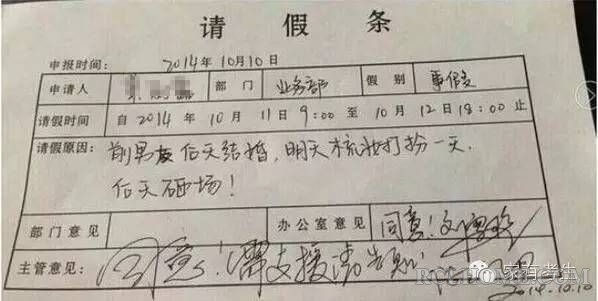 请假条
申报时间: 2014年10月10日
申请人 部门 业务部 假别 事假
请假时间 自2014年10月11日9:00至10月12日18:00止
请假原因: 前男友后天结婚,明天梳妆打扮一天,
后天砸场!
部门意见 办公室意见 同意!
主管意见: 同意!需支援请告知!
2014.10.10